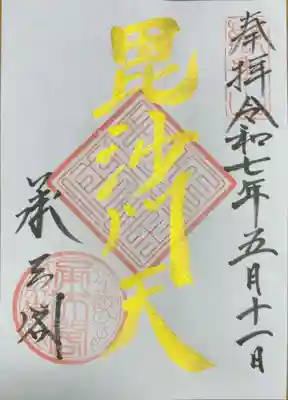 奉拝令和七年五月十一日
毘沙門天
承天閣